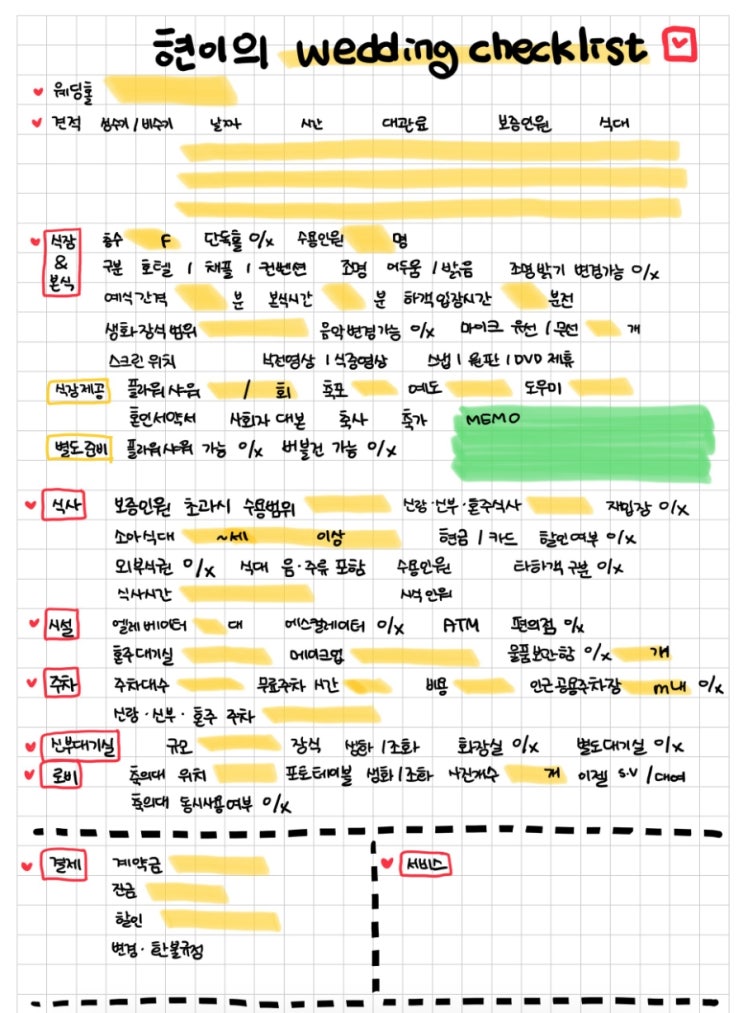 현이의 wedding checklist
웨딩홀
견적 성수기 / 비수기 날짜 시간 대관료 보증인원 식대
식장 & 본식 층수 F 단독홀 o/x 수용인원 명
구분 호텔 / 채플 / 컨벤션 조명 어두움 / 밝음 조명 밝기 변경가능 o/x
예식간격 분 본식시간 분 하객 입장시간 분전
생화장식 범위 음악변경가능 o/x 마이크 유선 / 무선 개
스크린 위치 식전영상 / 식중영상 스냅 / 원판 / DVD 제휴
식장제공 플라워샤워 / 회 축포 예도 도우미
혼인서약서 사회자 대본 축사 축가 MEMO
별도준비 플라워샤워 가능 o/x 버블건 가능 o/x
식사 보증인원 초과시 수용범위 신랑·신부·혼주식사 재입장 o/x
소아식대 ~세 이상 현금 / 카드 할인여부 o/x
외부식권 o/x 식대 음·주류 포함 수용인원 타하객 구분 o/x
식사시간 시식 인원
시설 엘레베이터 대 에스컬레이터 o/x ATM 편의점 o/x
혼주대기실 메이크업 물품보관함 o/x 개
주차 주차대수 무료주차 시간 비용 인근 공용주차장 m내 o/x
신랑·신부·혼주 주차
신부대기실 규모 장식 생화/조화 화장실 o/x 별도대기실 o/x
로비 축의대 위치 포토테이블 생화/조화 사진개수 개 이젤 S.V / 대여
축의대 동시사용여부 o/x
결제 계약금
잔금
할인
변경·환불규정
서비스